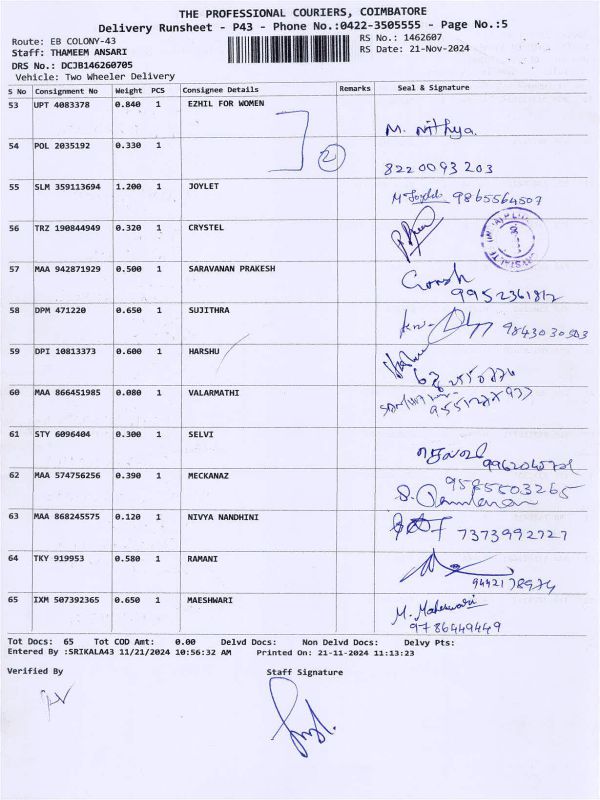 THE PROFESSIONAL COURIERS, COIMBATORE
Delivery Runsheet - P43 - Phone No.:0422-3505555 - Page No.:5
Route: EB COLONY-43
RS No.: 1462607
Staff: THAMEEM ANSARI
RS Date: 21-Nov-2024
DRS No.: DCJB146260705
Vehicle: Two Wheeler Delivery
S No Consignment No Weight PCS Consignee Details Remarks Seal & Signature
53 UPT 4083378 0.840 1 EZHIL FOR WOMEN
M. Nithya
54 POL 2035192 0.330 1 2
8220093203
55 SLM 359113694 1.200 1 JOYLET
9865564507
56 TRZ 190844949 0.320 1 CRYSTEL
57 MAA 942871929 0.500 1 SARAVANAN PRAKESH
9952361812
58 DPM 471220 0.650 1 SUJITHRA
9843030503
59 DPI 10813373 0.600 1 HARSHU
60 MAA 866451985 0.080 1 VALARMATHI
61 STY 6096404 0.300 1 SELVI
62 MAA 574756256 0.390 1 MECKANAZ
9585503265
63 MAA 868245575 0.120 1 NIVYA NANDHINI
7373992727
64 TKY 919953 0.580 1 RAMANI
65 IXM 507392365 0.650 1 MAESHWARI
M. Maheswari
9786449449
Tot Docs: 65 Tot COD Amt: 0.00 Delvd Docs: Non Delvd Docs: Delvy Pts:
Entered By :SRIKALA43 11/21/2024 10:56:32 AM Printed On: 21-11-2024 11:13:23
Verified By Staff Signature